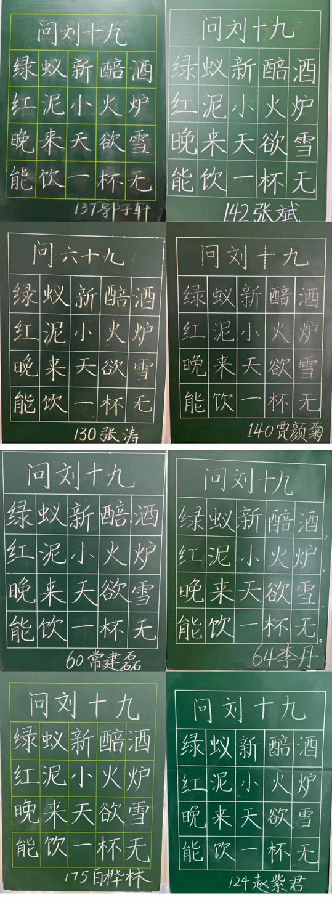 问刘十九
绿蚁新醅酒
红泥小火炉
晚来天欲雪
能饮一杯无
137
问刘十九
绿蚁新醅酒
红泥小火炉
晚来天欲雪
能饮一杯无
142张斌
问六十九
绿蚁新醅酒
红泥小火炉
晚来天欲雪
能饮一杯无
130张涛
问刘十九
绿蚁新醅酒
红泥小火炉
晚来天欲雪
能饮一杯无
140贾颜菊
问刘十九
绿蚁新醅酒
红泥小火炉
晚来天欲雪
能饮一杯无
60常建磊
问刘十九
绿蚁新醅酒
红泥小火炉
晚来天欲雪
能饮一杯无
64李丹
问刘十九
绿蚁新醅酒
红泥小火炉
晚来天欲雪
能饮一杯无
175白桦林
问刘十九
绿蚁新醅酒
红泥小火炉
晚来天欲雪
能饮一杯无
124赵紫君